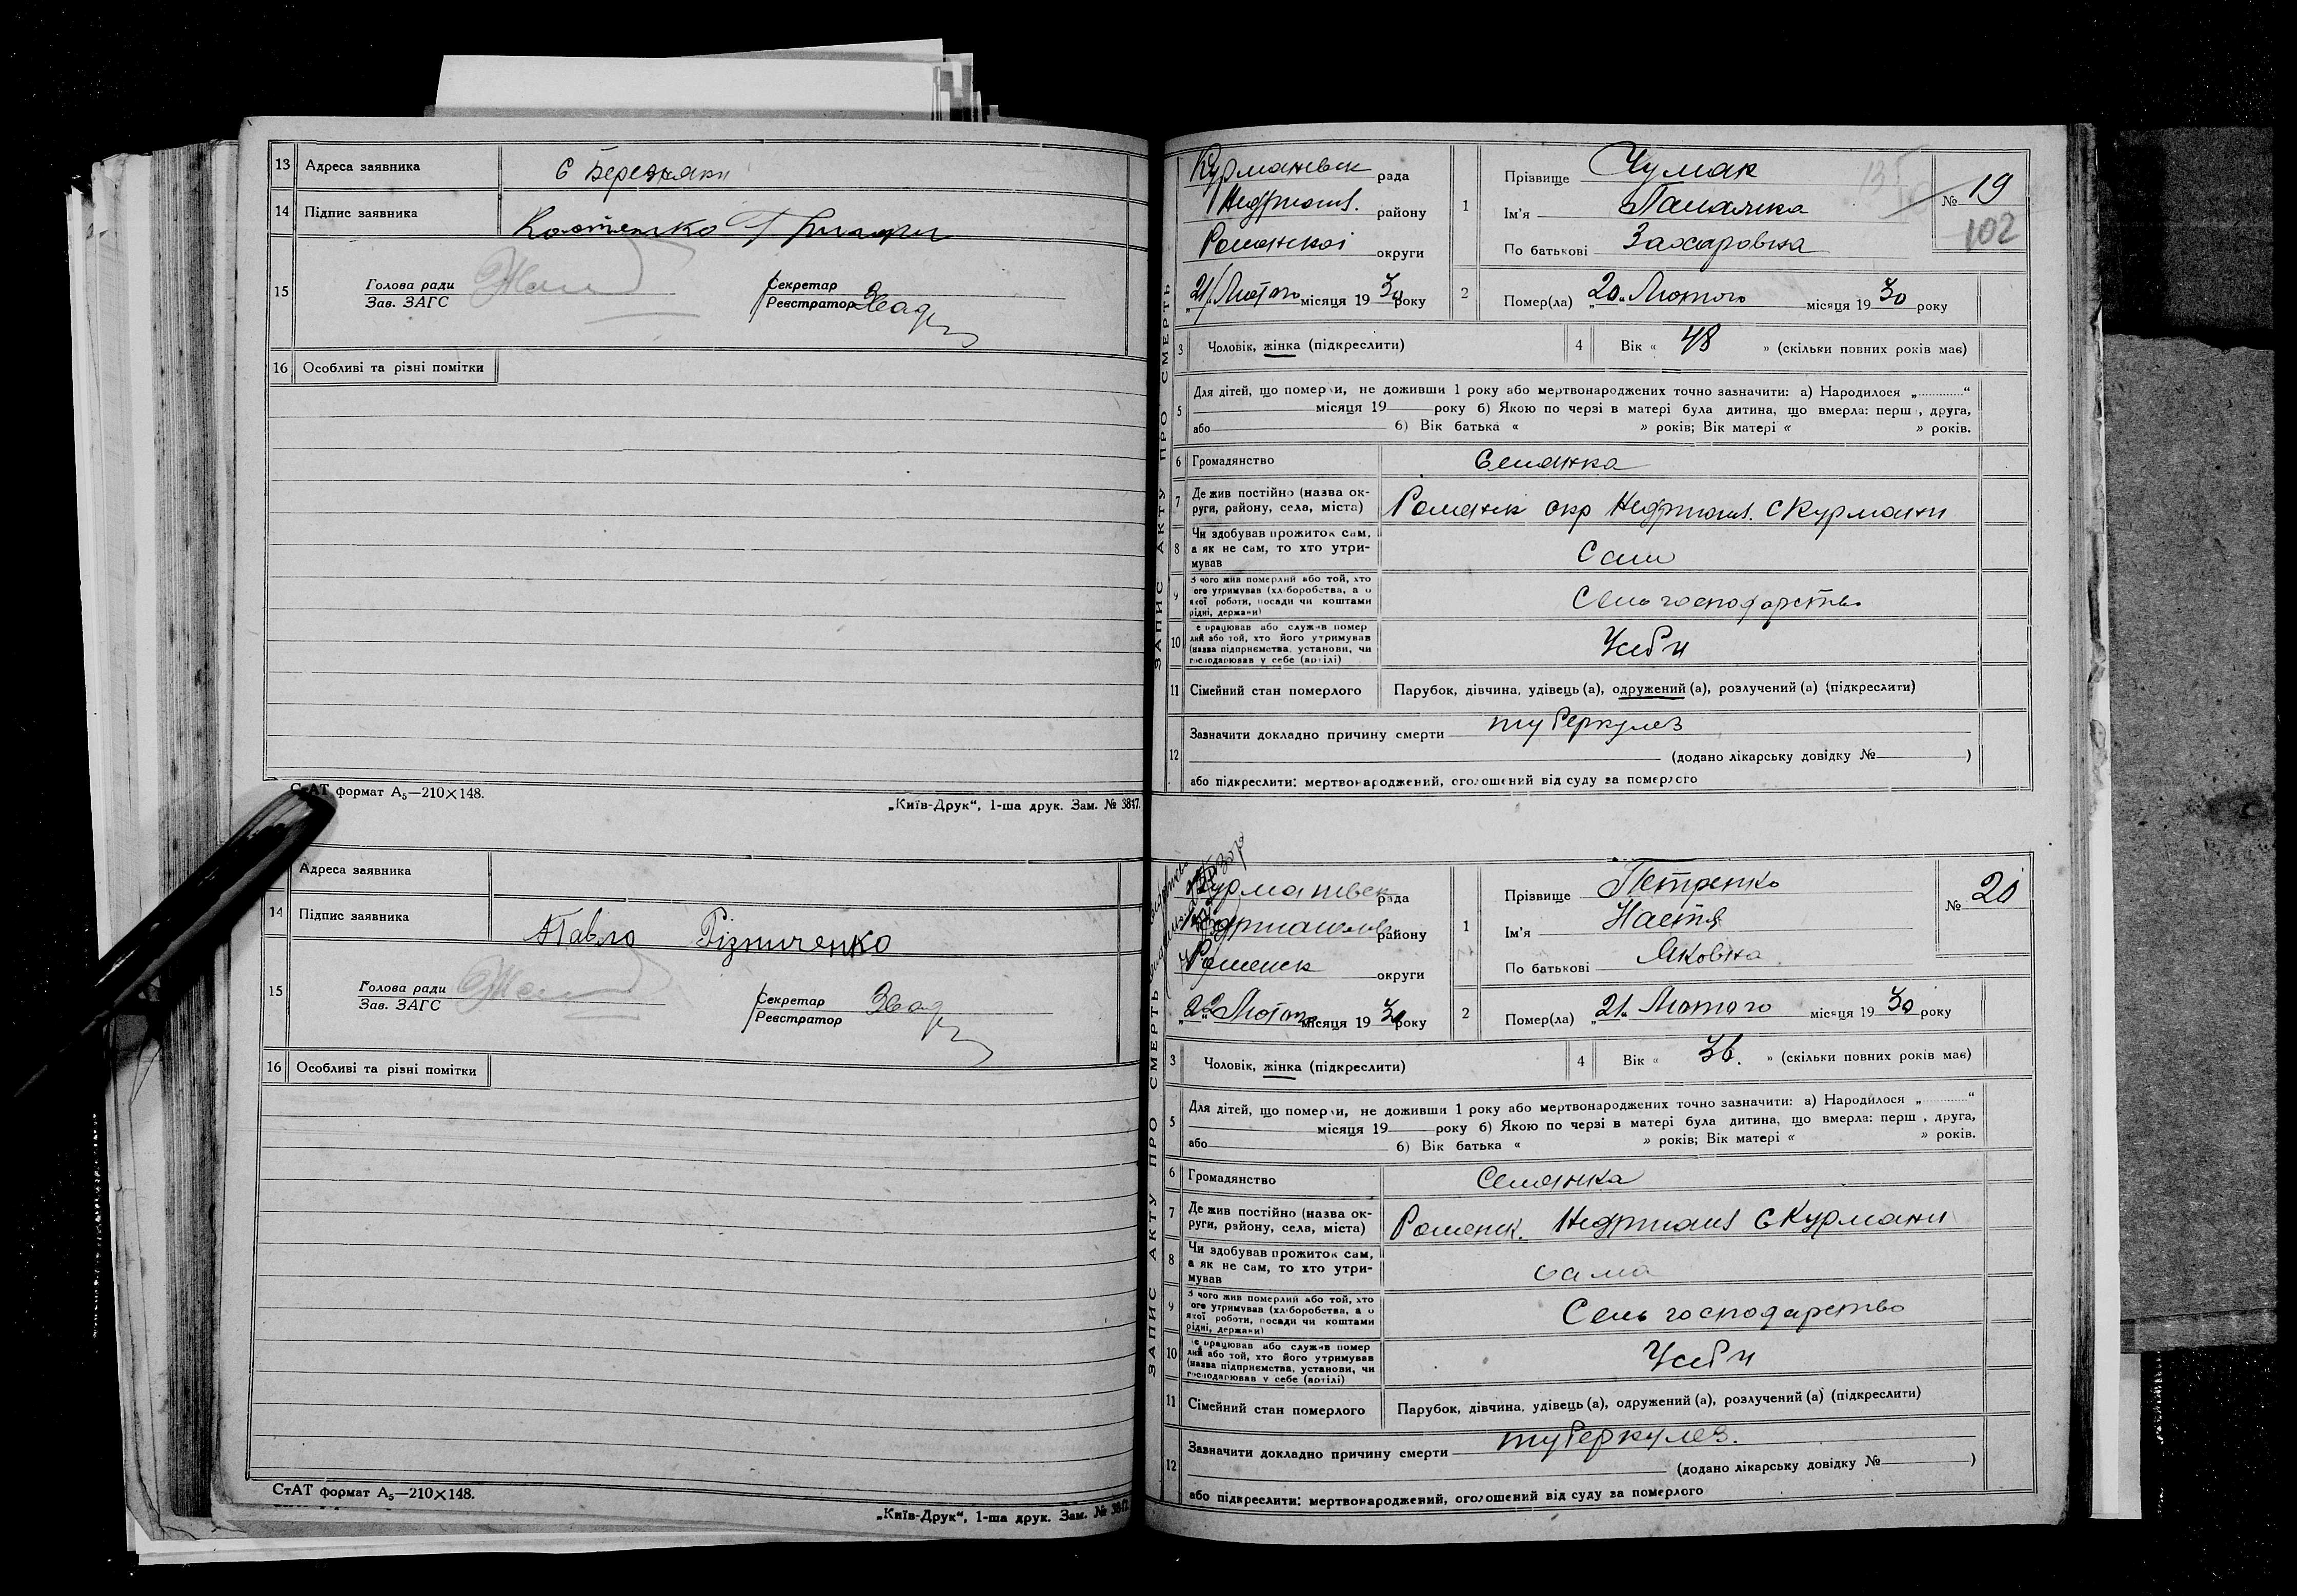 13 Адреса заявника С Березняки
14 Підпис заявника Костенко
15 Голова ради Зав. ЗАГС Секретар Реєстратор
16 Особливі та різні помітки
СтАТ формат А₅—210×148.
„Київ-Друк“, 1-ша друк. Зам. № 3817.
Адреса заявника
14 Підпис заявника Павло Різниченко
15 Голова ради Зав. ЗАГС Секретар Реєстратор
16 Особливі та різні помітки
СтАТ формат А₅—210×148.
„Київ-Друк“, 1-ша друк. Зам. №
ЗАПИС АКТУ ПРО СМЕРТЬ
Курманевск рада
Недригайл. району
Роменскоі округи
„21“ Лютого місяця 1930 року
1 Прізвище Чумак
Ім'я
По батькові Захаровна
№ 19
102
2 Помер(ла) „20“ Лютого місяця 1930 року
3 Чоловік, жінка (підкреслити)
4 Вік « 48 » (скільки повних років має)
5 Для дітей, що померли, не доживши 1 року або мертвонароджених точно зазначити: а) Народилося „............“
місяця 19 року б) Якою по черзі в матері була дитина, що вмерла: перш , друга,
або б) Вік батька « » років; Вік матері « » років.
6 Громадянство Селянка
7 Де жив постійно (назва округи, району, села, міста) Роменск окр Недригайл. С Курмани
8 Чи здобував прожиток сам, а як не сам, то хто утримував Сам
9 З чого жив померлий або той, хто його утримував (хліборобства, а о якої роботи, посади чи коштами рідні, держави) Сель господарство
10 е працював або служив помер лий або той, хто його утримував (назва підприємства, установи, чи господарював у себе (артілі) Усеби
11 Сімейний стан померлого Парубок, дівчина, удівець (а), одружений (а), розлучений (а) (підкреслити)
12 Зазначити докладно причину смерти туберкулез
(додано лікарську довідку № )
або підкреслити: мертвонароджений, оголошений від суду за померлого
ЗАПИС АКТУ ПРО СМЕРТЬ
Курманевск рада
району
Роменск округи
„22“ Лютого місяця 1930 року
1 Прізвище Петренко
Ім'я Настя
По батькові Яковна
№ 20
2 Помер(ла) „21“ Лютого місяця 1930 року
3 Чоловік, жінка (підкреслити)
4 Вік « 36. » (скільки повних років має)
5 Для дітей, що померли, не доживши 1 року або мертвонароджених точно зазначити: а) Народилося „............“
місяця 19 року б) Якою по черзі в матері була дитина, що вмерла: перш , друга,
або б) Вік батька « » років; Вік матері « » років.
6 Громадянство Селянка
7 Де жив постійно (назва округи, району, села, міста) Роменск. Недригайл С Курмани
8 Чи здобував прожиток сам, а як не сам, то хто утримував сама
9 З чого жив померлий або той, хто його утримував (хліборобства, а о якої роботи, посади чи коштами рідні, держави) Сель господарство
10 е працював або служив помер лий або той, хто його утримував (назва підприємства, установи, чи господарював у себе (артілі) Усеби
11 Сімейний стан померлого Парубок, дівчина, удівець (а), одружений (а), розлучений (а) (підкреслити)
12 Зазначити докладно причину смерти туберкулез.
(додано лікарську довідку № )
або підкреслити: мертвонароджений, оголошений від суду за померлого